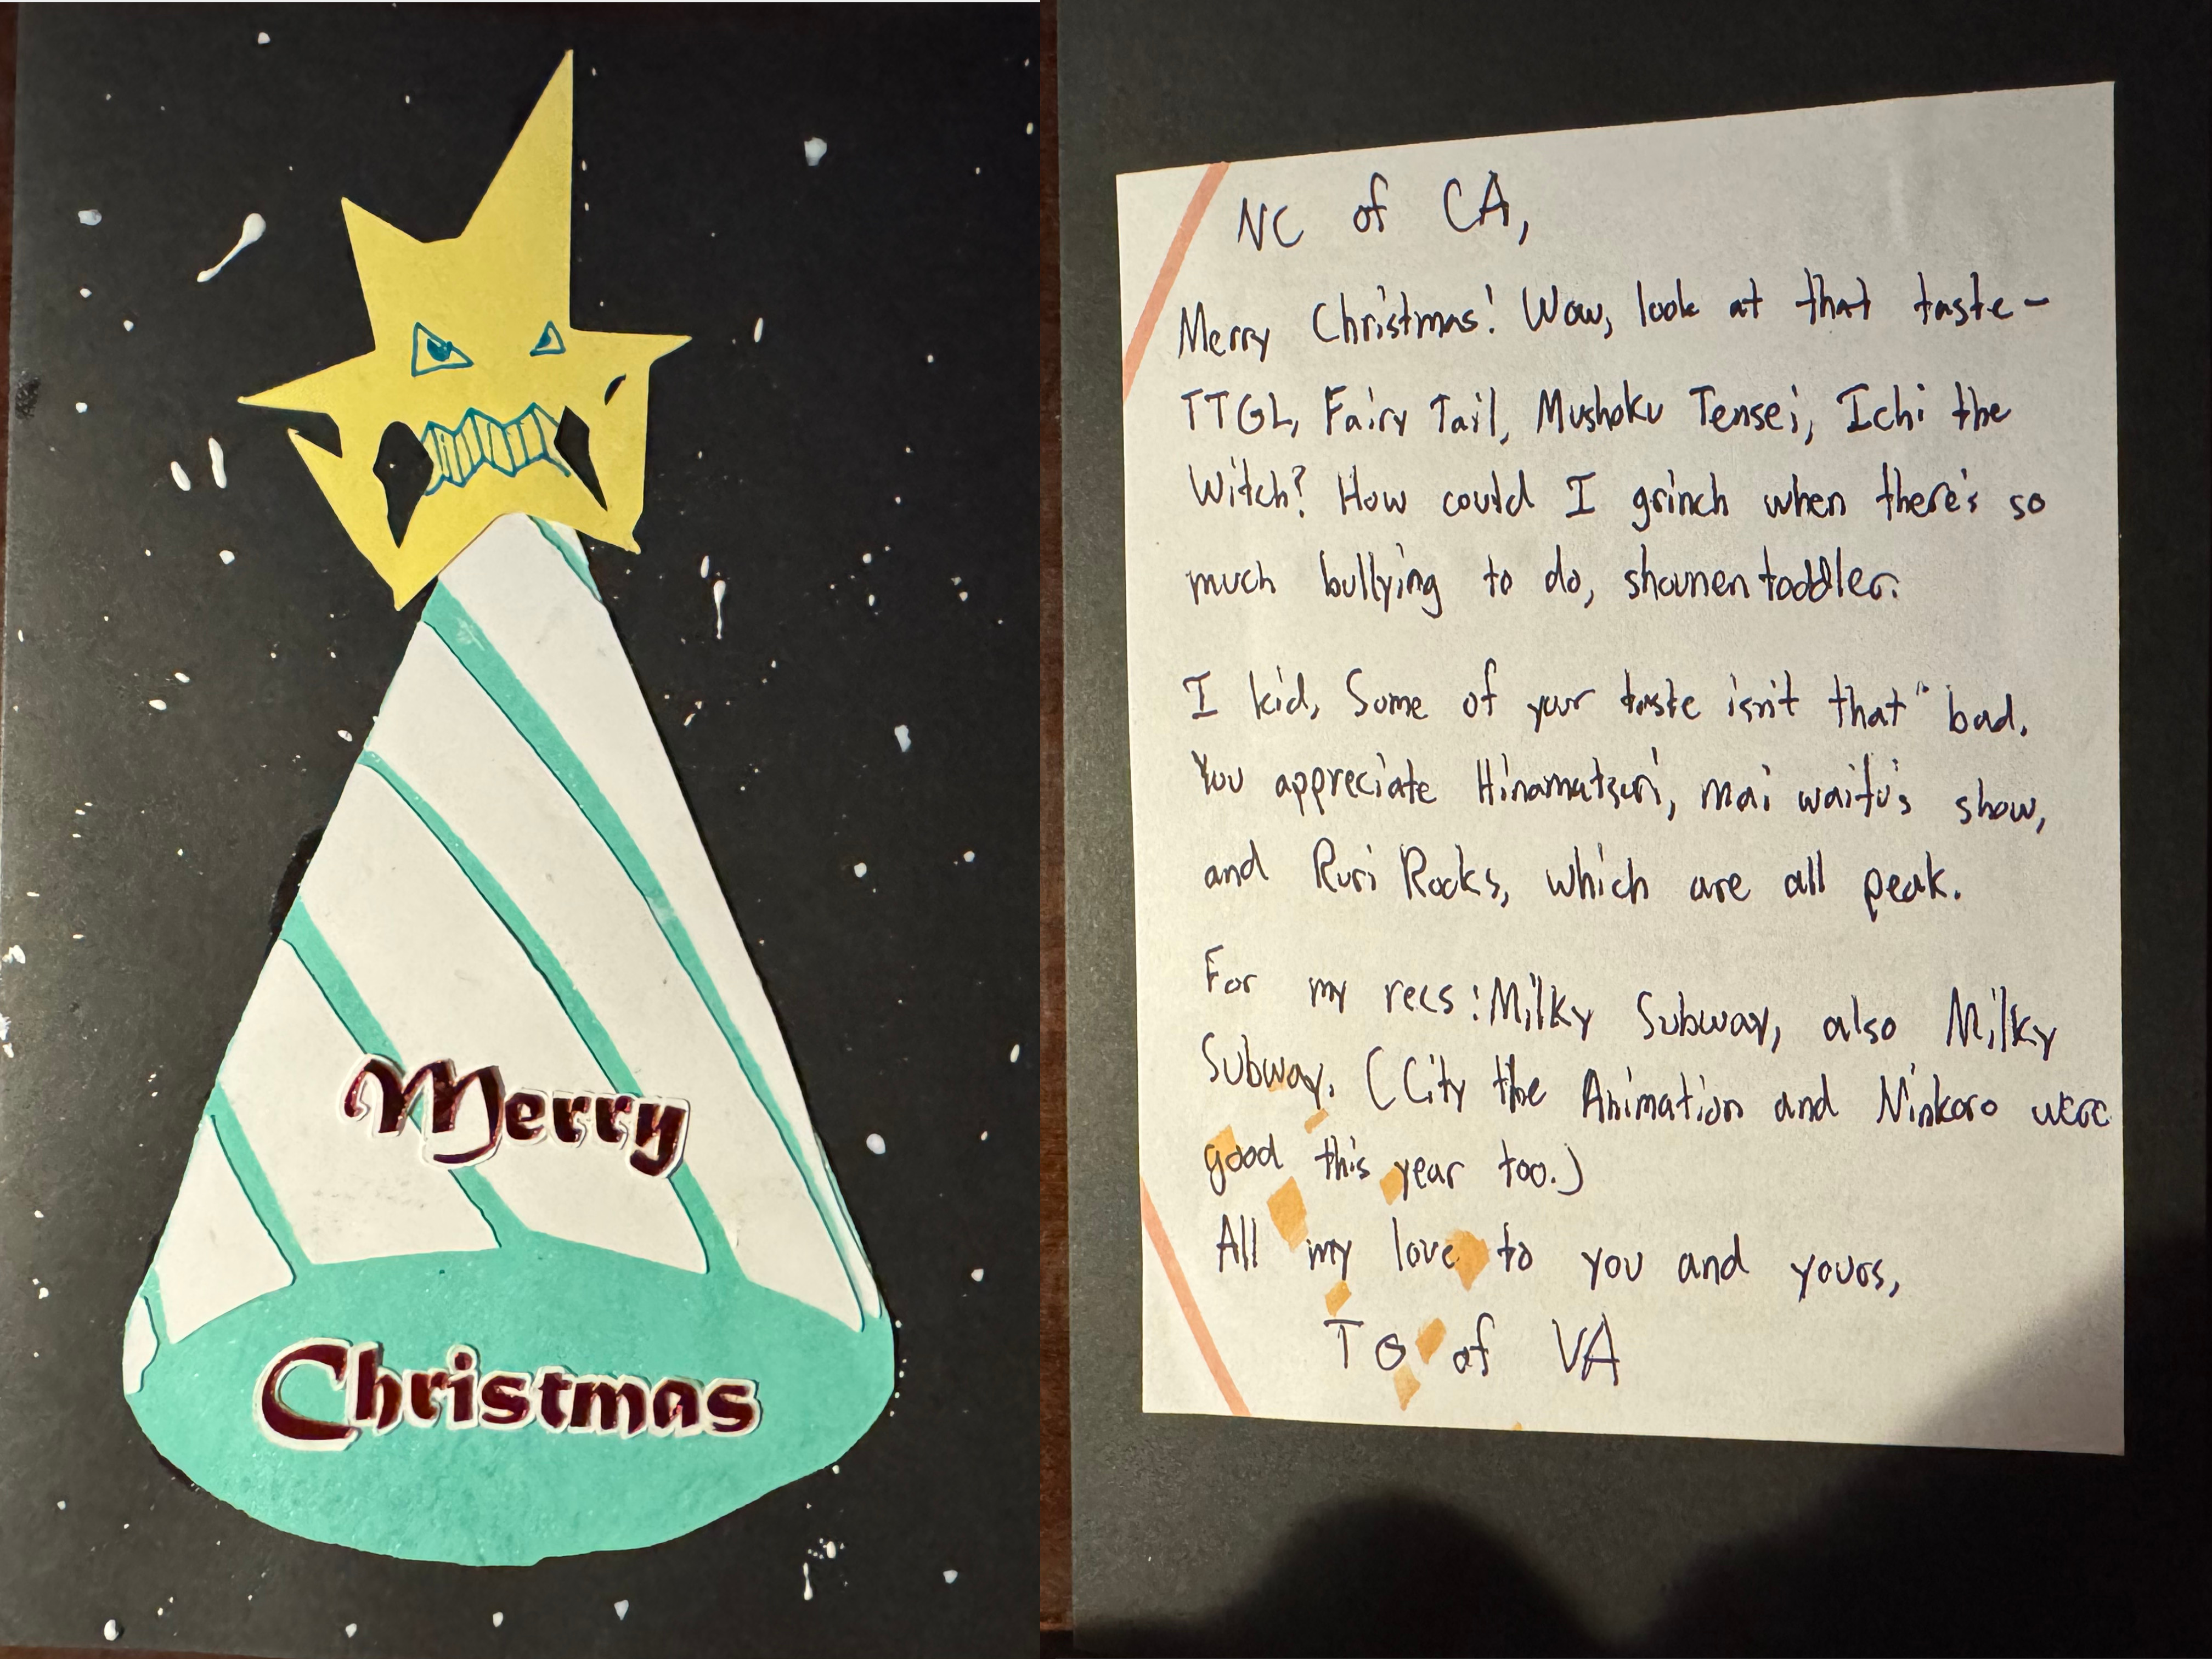 Merry
Christmas
NC of CA,
Merry Christmas! Wow, look at that taste-
TTGL, Fairy Tail, Mushoku Tensei, Ichi the
Witch? How could I grinch when there's so
much bullying to do, shounen toddler.
I kid, Some of your taste isn't that" bad.
You appreciate Hinamatsuri, mai waifu's show,
and Ruri Rocks, which are all peak.
For my recs: Milky Subway, also Milky
Subway. (City the Animation and Ninkoro were
good this year too.)
All my love to you and yours,
TG of VA